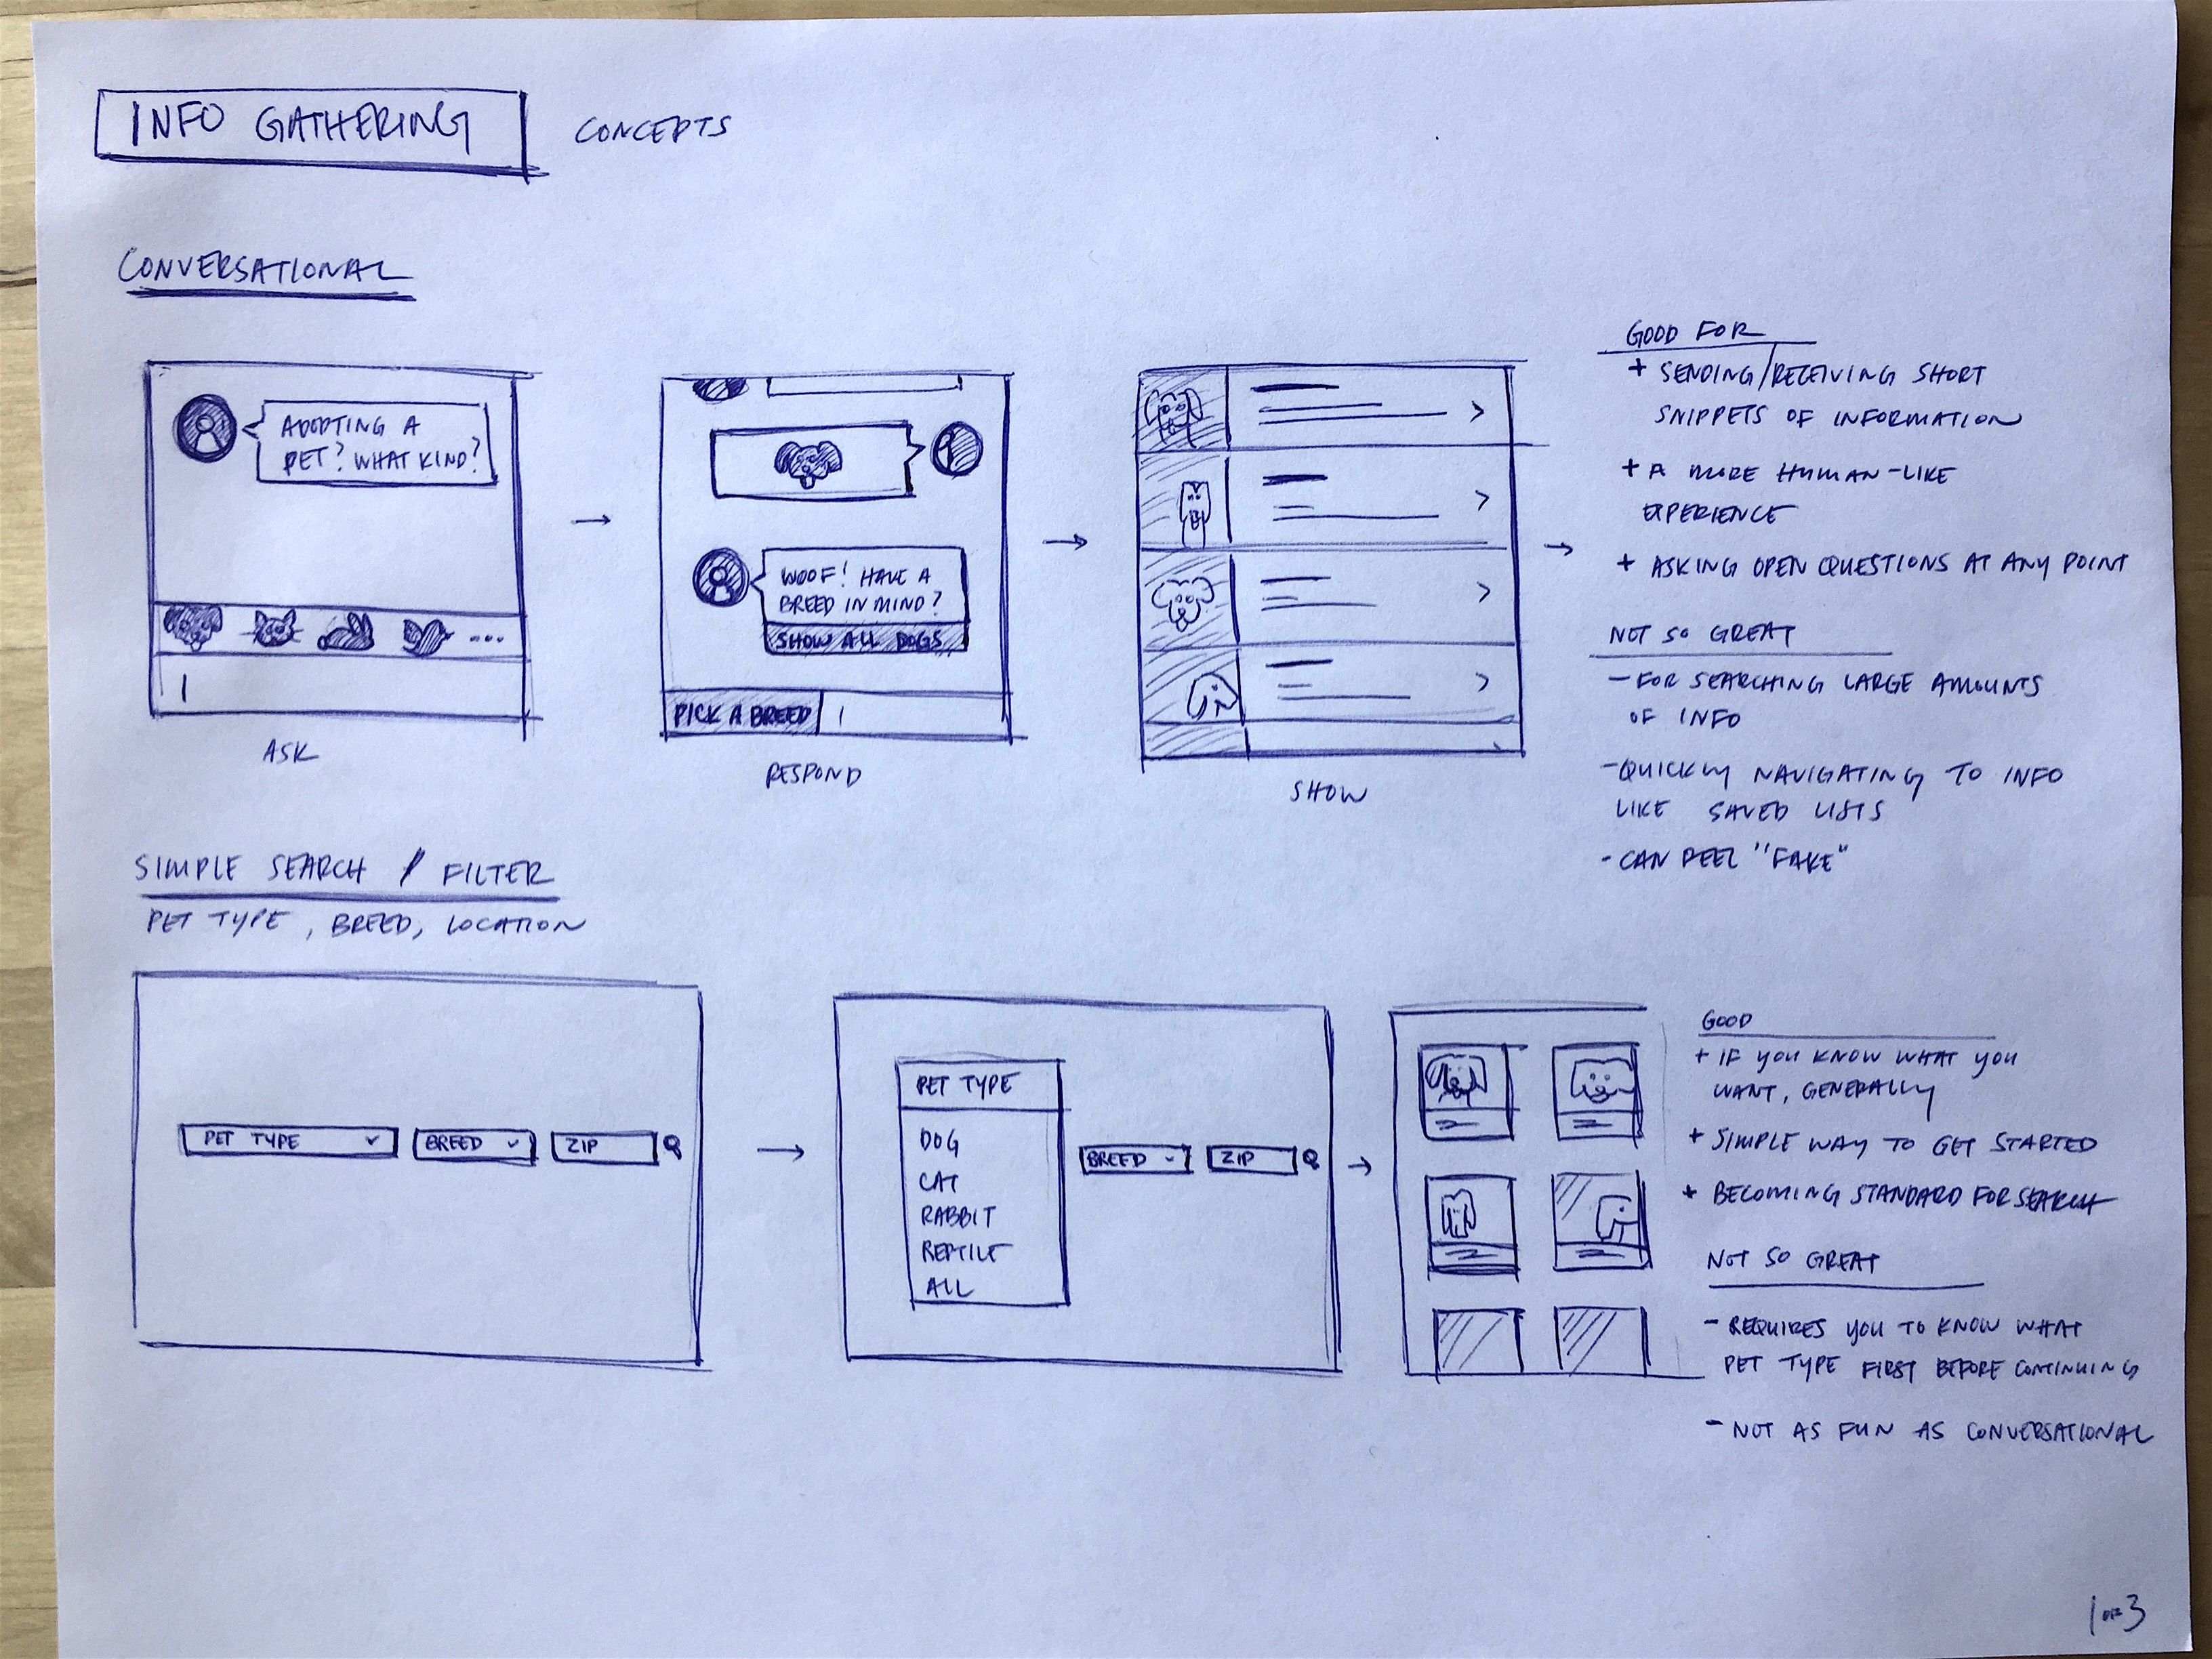 INFO GATHERING CONCEPTS
CONVERSATIONAL
ADOPTING A
PET? WHAT KIND?
ASK
WOOF! HAVE A
BREED IN MIND?
SHOW ALL DOGS
PICK A BREED
RESPOND
SHOW
GOOD FOR
+ SENDING/RECEIVING SHORT
SNIPPETS OF INFORMATION
+ A MORE HUMAN-LIKE
EXPERIENCE
+ ASKING OPEN QUESTIONS AT ANY POINT
NOT SO GREAT
- FOR SEARCHING LARGE AMOUNTS
OF INFO
- QUICKLY NAVIGATING TO INFO
LIKE SAVED LISTS
- CAN FEEL "FAKE"
SIMPLE SEARCH / FILTER
PET TYPE, BREED, LOCATION
PET TYPE BREED ZIP
PET TYPE
DOG
CAT
RABBIT
REPTILE
ALL
BREED ZIP
GOOD
+ IF YOU KNOW WHAT YOU
WANT, GENERALLY
+ SIMPLE WAY TO GET STARTED
+ BECOMING STANDARD FOR SEARCH
NOT SO GREAT
- REQUIRES YOU TO KNOW WHAT
PET TYPE FIRST BEFORE CONTINUING
- NOT AS FUN AS CONVERSATIONAL
1 OF 3